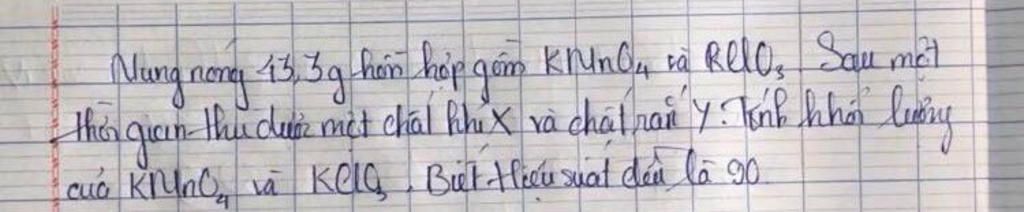 Nung nóng 13,3g hỗn hợp gồm KMnO4 và KClO3. Sau một
thời gian thu được một chất khí X và chất rắn Y. Tính khối lượng
của KMnO4 và KClO3. Biết hiệu suất đều là 90